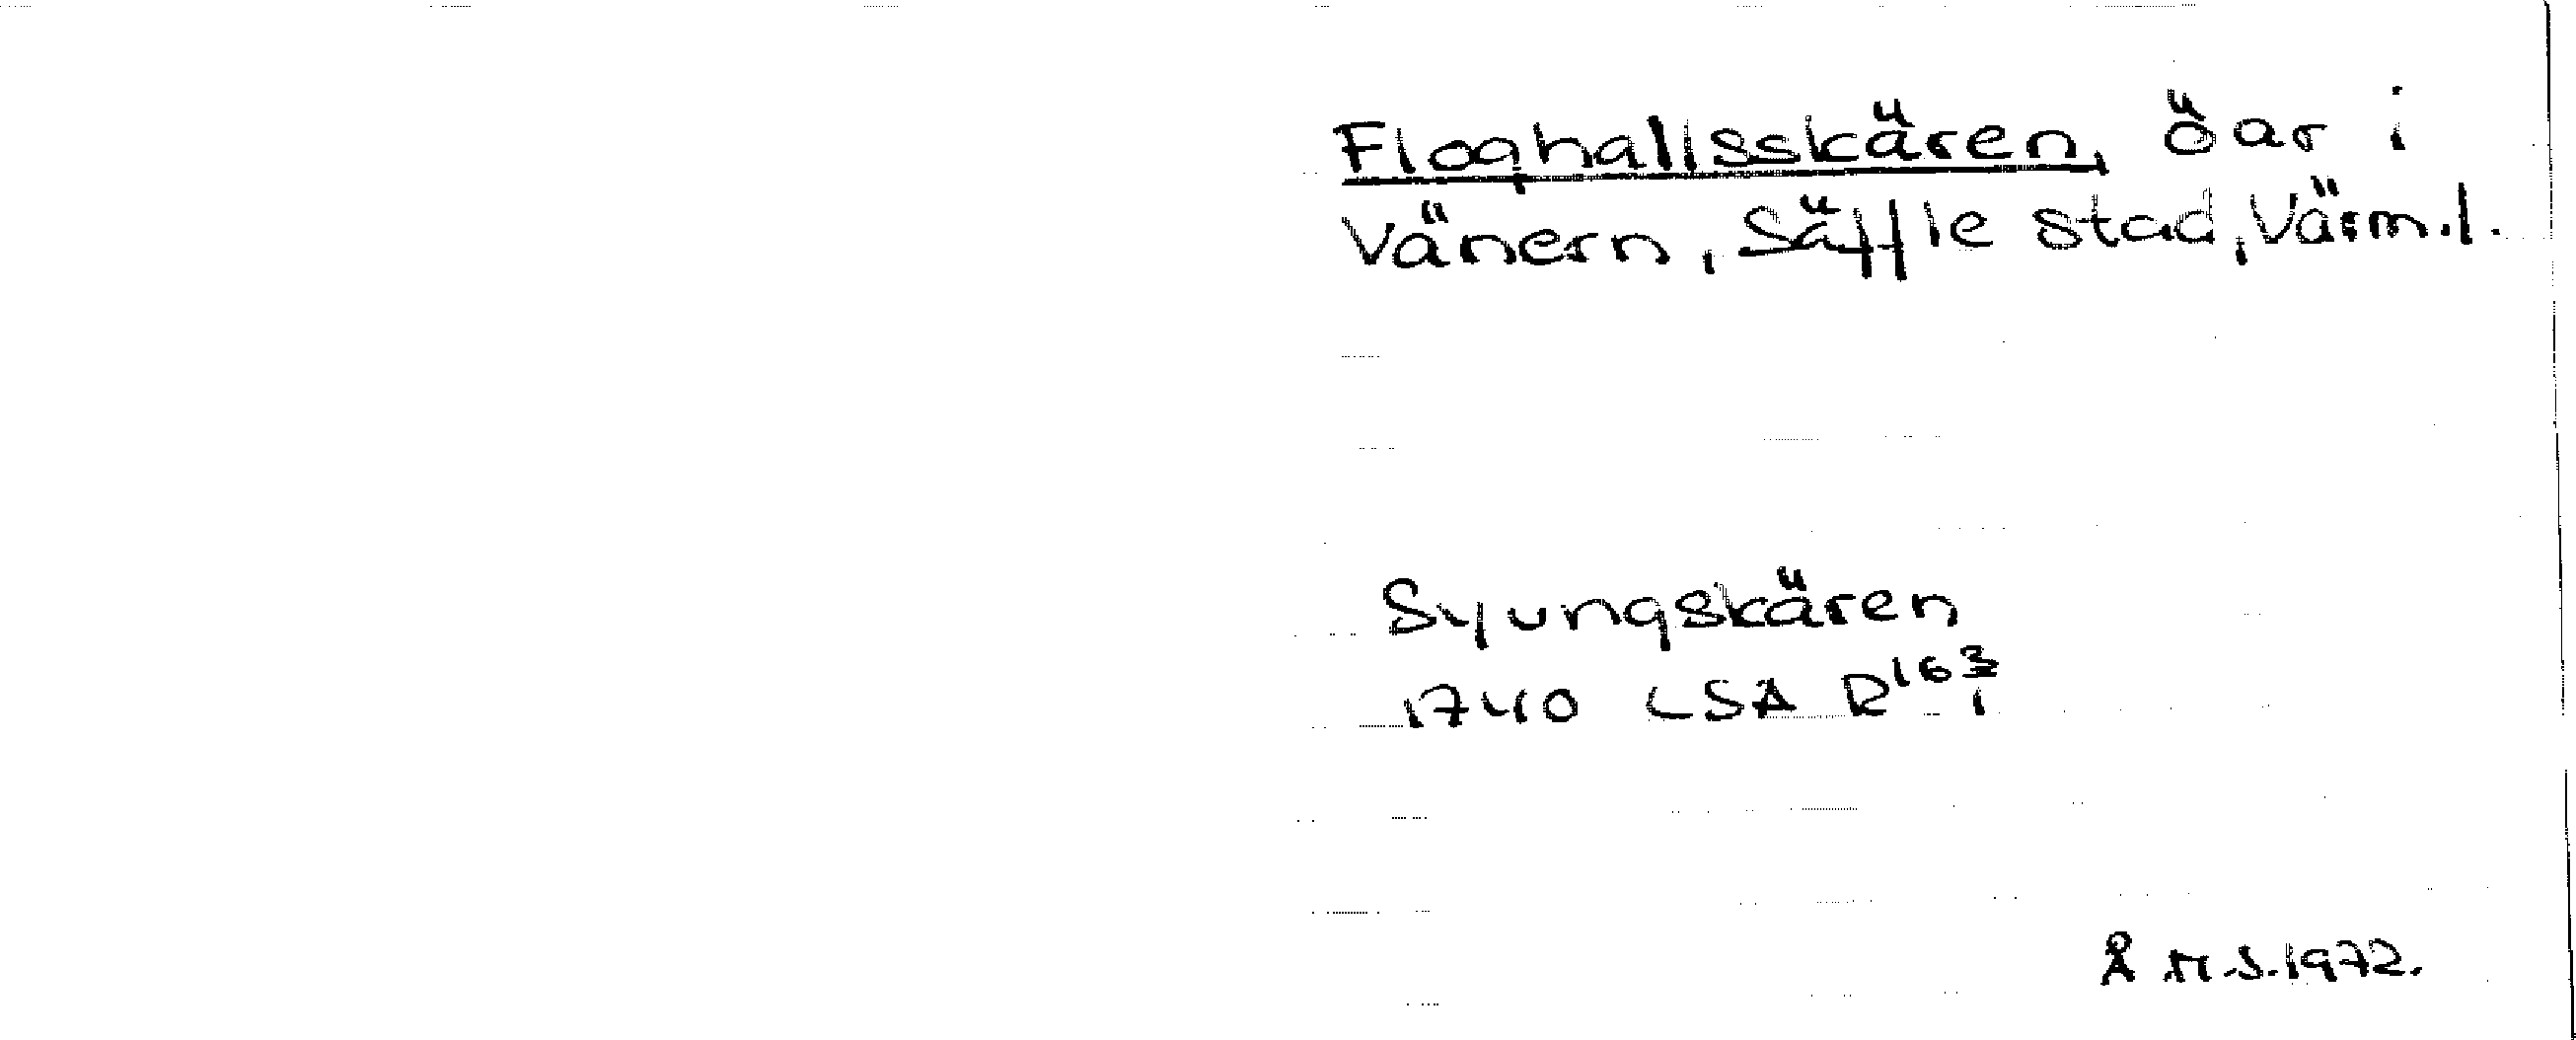 Floghallsskären, öar i
Vänern, Säffle stad, Värm.l.
Syungskären
1740 LSA R163/1
Å M.S.1972.